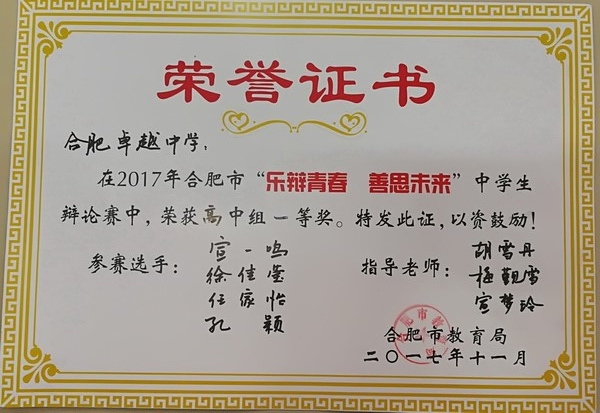 荣誉证书
合肥卓越中学:
在2017年合肥市“乐辩青春 善思未来”中学生
辩论赛中,荣获高中组一等奖。特发此证,以资鼓励!
参赛选手: 宣一鸣
徐佳莹
任家怡
孔颖
指导老师: 胡雪丹
梅觐雪
宣梦玲
合肥市教育局
二〇一七年十一月